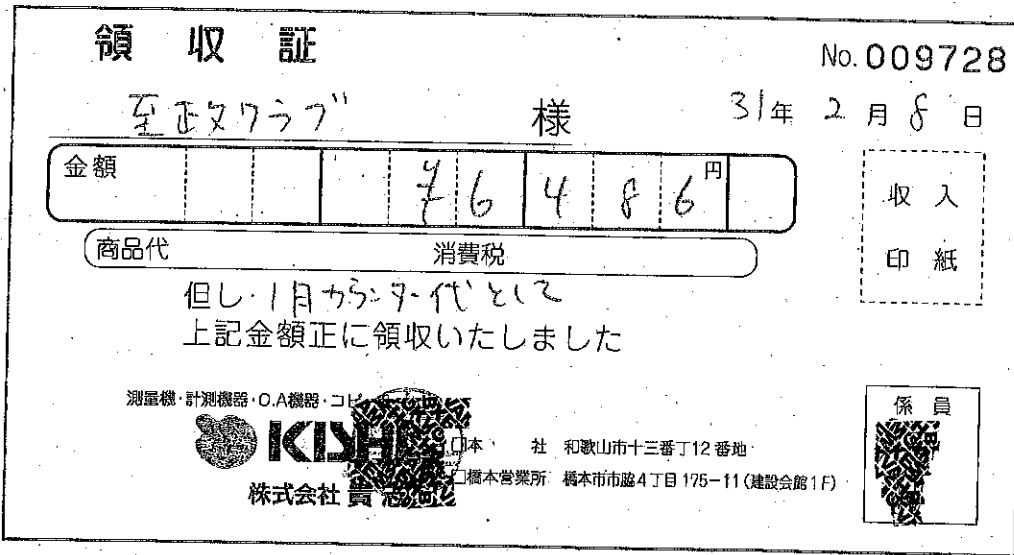 領収証
No.009728
至政クラブ 様 31年2月8日
金額 ¥6486円
収入
印紙
商品代 消費税
但し 1月カウンター代として
上記金額正に領収いたしました
測量機・計測機器・O.A機器・コピ
KISHI
係員
□本 社 和歌山市十三番丁12番地
□橋本営業所 橋本市市脇4丁目175-11(建設会館1F)
株式会社 貴志